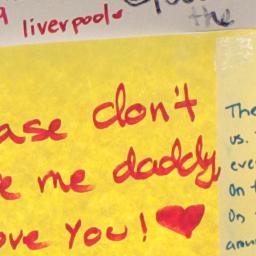 liverpool
the
ase don't
e me daddy
ove You!
The
us.
eve
On t
On
aroun